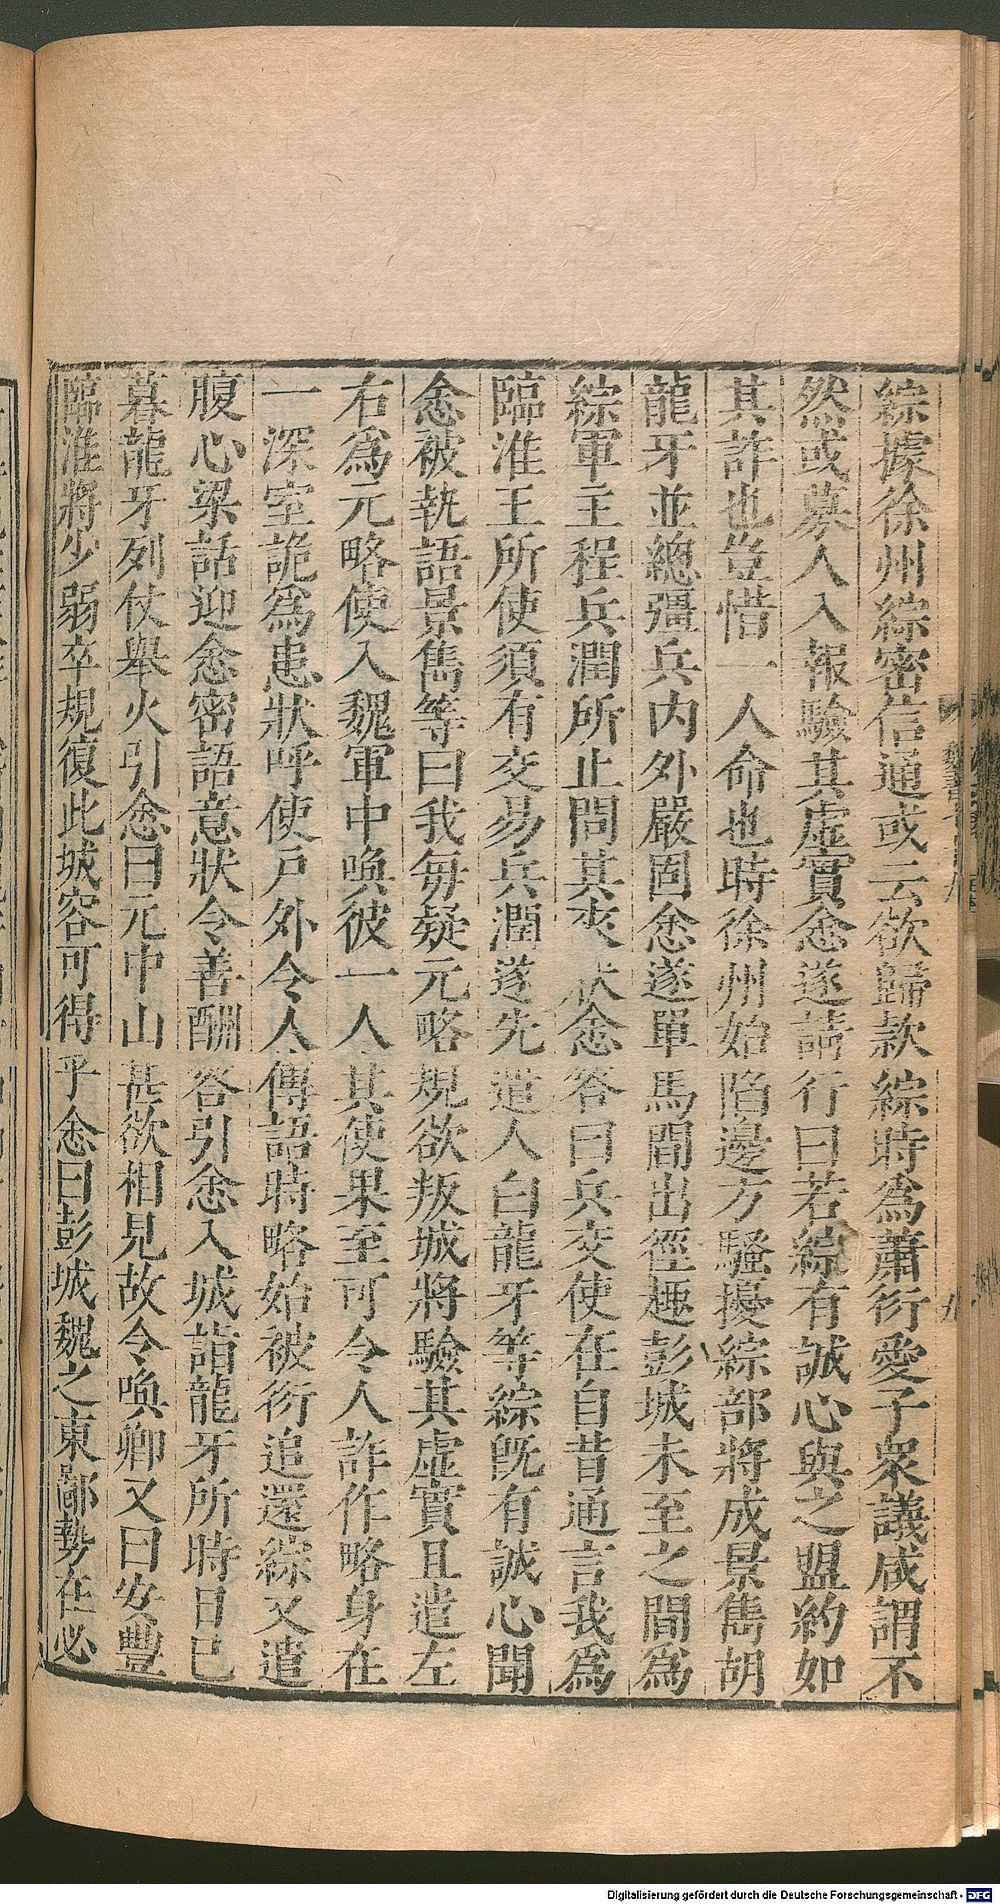 綜據徐州綜密信通或云欲歸款綜時爲蕭衍愛子衆議咸謂不
然或募人入報驗其虛實悆遂請行曰若綜有誠心與之盟約如
其詐也豈惜一人命也時徐州始陷邊方騷擾綜部將成景雋胡
龍牙並總彊兵内外嚴固悆遂單馬間出徑趣彭城未至之間爲
綜軍主程兵潤所止問其來狀悆答曰兵交使在自昔通言我爲
臨淮王所使須有交易兵潤遂先遣人白龍牙等綜既有誠心聞
悆被執語景雋等曰我每疑元略規欲叛城將驗其虛實且遣左
右爲元略使入魏軍中喚彼一人其使果至可令人詐作略身在
一深室詭爲患狀呼使戸外令人傳語時略始被衍追還綜又遣
腹心梁話迎悆密語意狀令善酬答引悆入城詣龍牙所時日已
暮龍牙列仗舉火引悆曰元中山甚欲相見故令喚卿又曰安豐
臨淮將少弱卒規復此城容可得乎悆曰彭城魏之東鄙勢在必
Digitalisierung gefördert durch die Deutsche Forschungsgemeinschaft - DFG